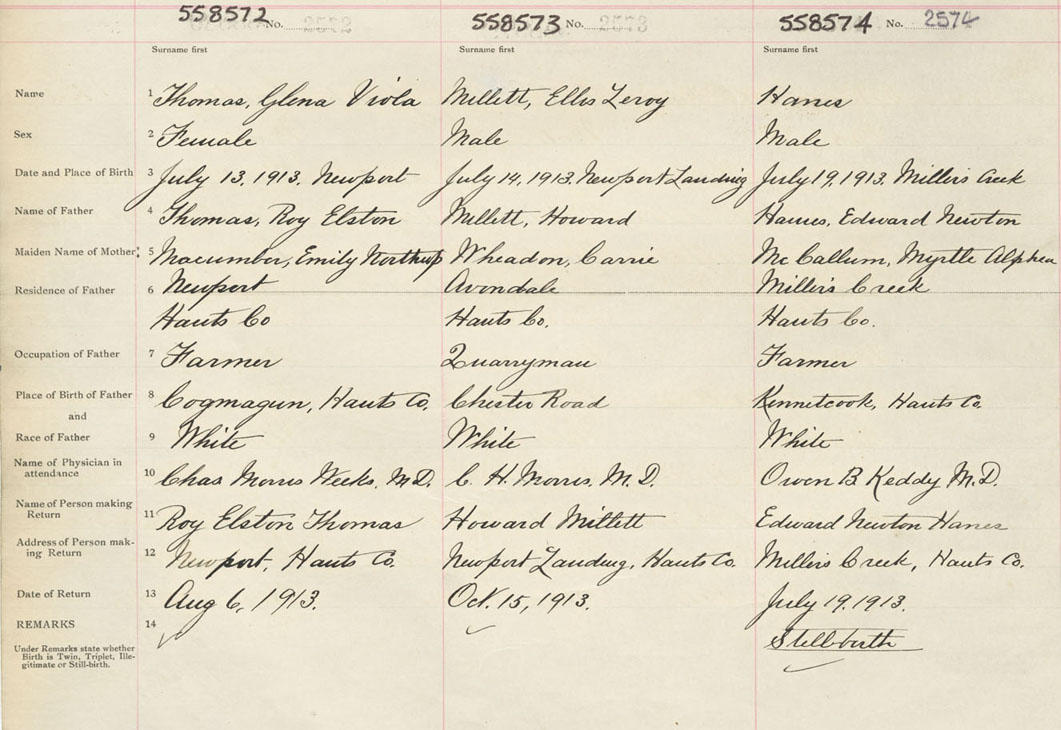 558572 No. 2572 558573 No. 2573 558574 No. 2574
Surname first Surname first Surname first
Name 1 Thomas, Glena Viola Millett, Ellis Leroy Hanes
Sex 2 Female Male Male
Date and Place of Birth 3 July 13, 1913. Newport July 14, 1913. Newport Landing July 19, 1913. Millers Creek
Name of Father 4 Thomas, Roy Elston Millett, Howard Hames, Edward Newton
Maiden Name of Mother 5 Macumber, Emily Northup Wheadon, Carrie McCallum, Myrtle Alphea
Residence of Father 6 Newport Avondale Millers Creek
Hants Co Hants Co. Hants Co.
Occupation of Father 7 Farmer Quarryman Farmer
Place of Birth of Father 8 Cogmagun, Hants Co. Chester Road Kennetcook, Hants Co.
and
Race of Father 9 White White White
Name of Physician in
attendance 10 Chas Morris Weeks, M.D. C. H. Morris, M.D. Owen B Keddy M.D.
Name of Person making
Return 11 Roy Elston Thomas Howard Millett Edward Newton Hanes
Address of Person mak-
ing Return 12 Newport, Hants Co. Newport Landing, Hants Co. Millers Creek, Hants Co.
Date of Return 13 Aug 6, 1913. Oct. 15, 1913. July 19. 1913.
REMARKS 14 Stillbirth
Under Remarks state whether
Birth is Twin, Triplet, Ille-
gitimate or Still-birth.